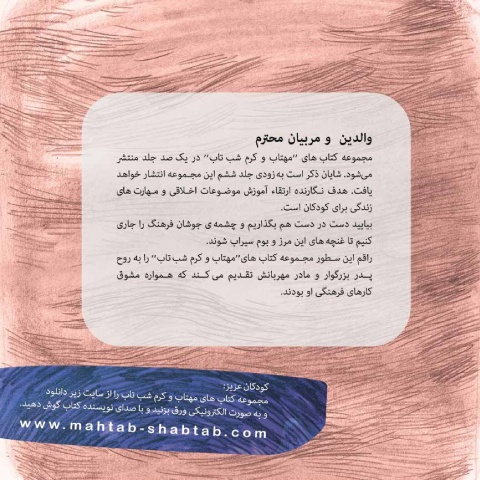 والدین و مربیان محترم
مجموعه کتاب های "مهتاب و کرم شب تاب" در یک صد جلد منتشر
می‌شود. شایان ذکر است به زودی جلد ششم این مجموعه انتشار خواهد
یافت. هدف نگارنده ارتقاء آموزش موضوعات اخلاقی و مهارت های
زندگی برای کودکان است.
بیایید دست در دست هم بگذاریم و چشمه ی جوشان فرهنگ را جاری
کنیم تا غنچه های این مرز و بوم سیراب شوند.
راقم این سطور مجموعه کتاب های "مهتاب و کرم شب تاب" را به روح
پدر بزرگوار و مادر مهربانش تقدیم می کند که همواره مشوق
کارهای فرهنگی او بودند.
کودکان عزیز:
مجموعه کتاب های مهتاب و کرم شب تاب را از سایت زیر دانلود
و به صورت الکترونیکی ورق بزنید و با صدای نویسنده کتاب گوش دهید.
www.mahtab-shabtab.com